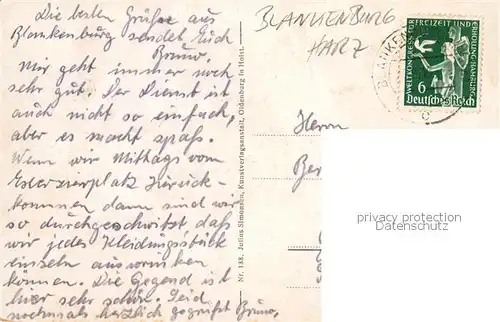 Die besten Grüße aus
Blankenburg sendet Euch
Bruno.
Mir geht immer noch
sehr gut. Der Dienst ist
auch nicht so einfach,
aber es macht spaß.
Wenn wir Mittags vom
Exerzierplatz zurück-
kommen dann sind wir
so durchgeschwitzt daß
wir jedes Kleidungsstück
einzeln auswrinken
können. Die Gegend ist
hier sehr schön. Seid
nochmals herzlich gegrüßt Bruno.
Nr. 188. Julius Simonsen, Kunstverlagsanstalt, Oldenburg in Holst.
BLANKENBURG
HARZ
BLANKEN
WELTKONGRESS FÜR FREIZEIT UND ERHOLUNG HAMBURG
6
Deutsches Reich
Herrn
Ber
privacy protection
Datenschutz